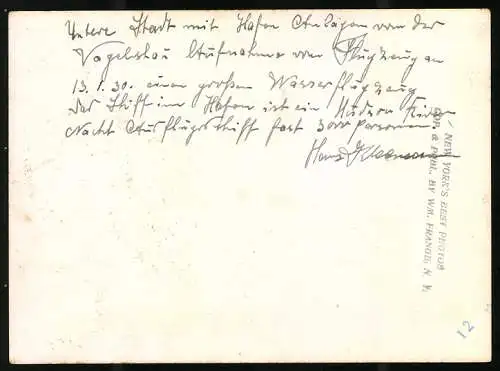 Untere Stadt mit Hafen Anlagen von der
Vogelschau Aufnahme vom Flugzeug an
13.1.30. einen großen Wasserflugzeug
Das Schiff im Hafen ist ein Hudson River
Nacht Ausflugsschiff fast 3000 Personen.
Hans
NEW YORK'S BEST PHOTOS
COP. & PUBL. BY WM. FRANGE, N. Y.
12